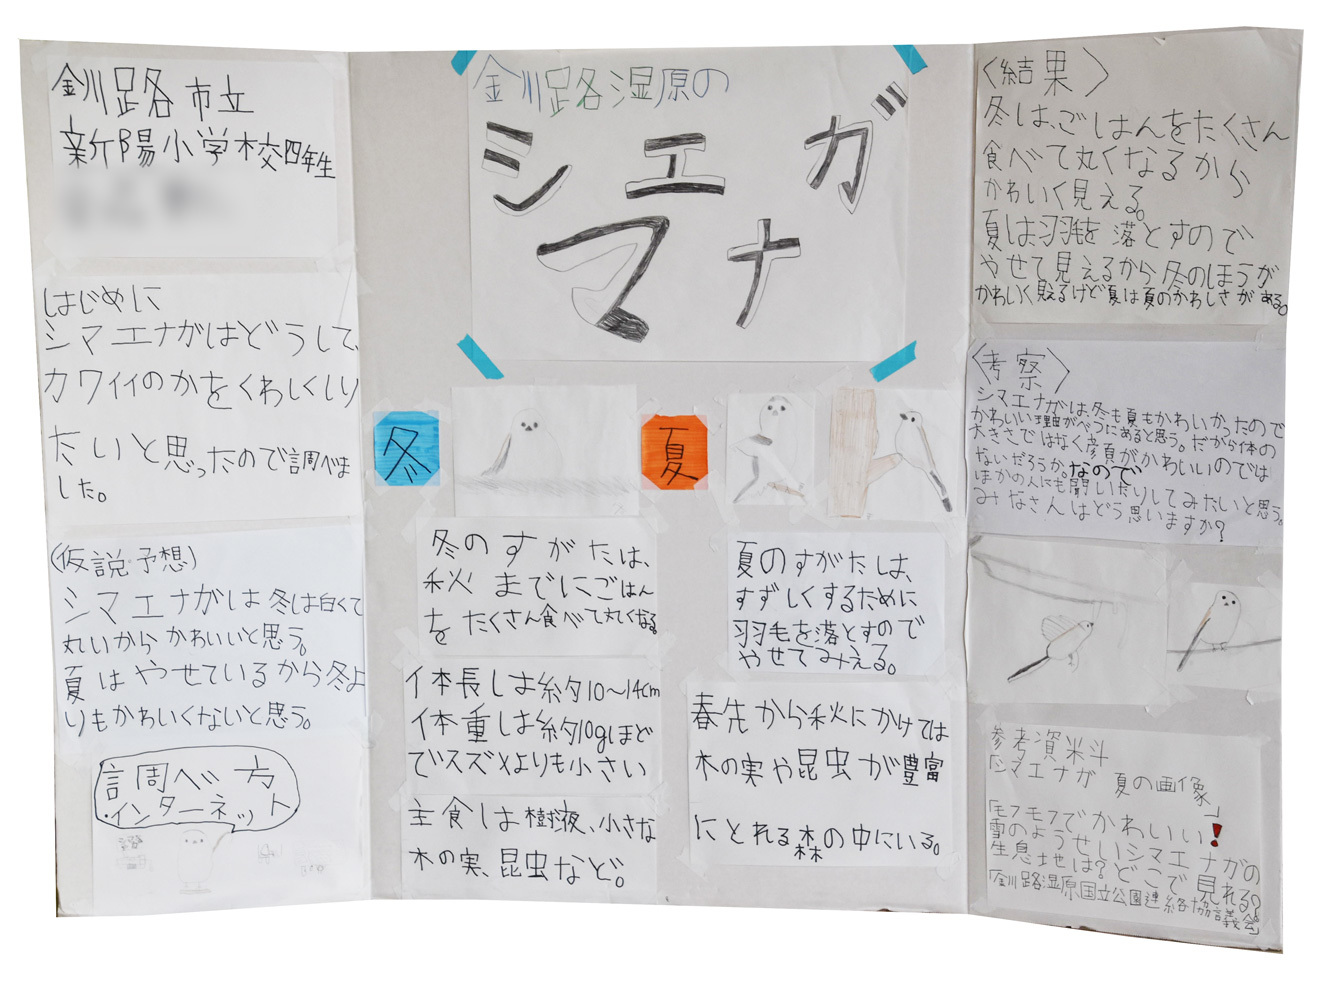 釧路市立
新陽小学校四年生
はじめに
シマエナガはどうして、
カワイイのかをくわしくしり
たいと思ったので調べま
した。
(仮説・予想)
シマエナガは冬は白くて
丸いからかわいいと思う。
夏はやせているから冬よ
りもかわいくないと思う。
調べ方
・インターネット
釧路湿原の
シマエナガ
冬
冬のすがたは、
秋までにごはん
をたくさん食べて丸くなる。
体長は約10~14cm
体重は約10gほど
でスズメよりも小さい
主食は樹液、小さな
木の実、昆虫など。
夏
夏のすがたは、
すずしくするために
羽毛を落とすので
やせてみえる。
春先から秋にかけては
木の実や昆虫が豊富
にとれる森の中にいる。
〈結果〉
冬は、ごはんをたくさん
食べて丸くなるから
かわいく見える。
夏は、羽毛を落とすので
やせて見えるから冬のほうが
かわいく見えるけど夏は夏のかわいさがある。
〈考察〉
シマエナガは、冬も夏もかわいかったので
かわいい理由がべつにあると思う。だから体の
大きさではなく彦頁がかわいいのでは
ないだろうか。なので
ほかの人にも聞いたりしてみたいと思う。
みなさんはどう思いますか?
参考資料
「シマエナガ 夏の画像」
「モフモフでかわいい!
雪のようせいシマエナガの
生息地は?どこで見れる?
「釧路湿原国立公園連絡協議会」